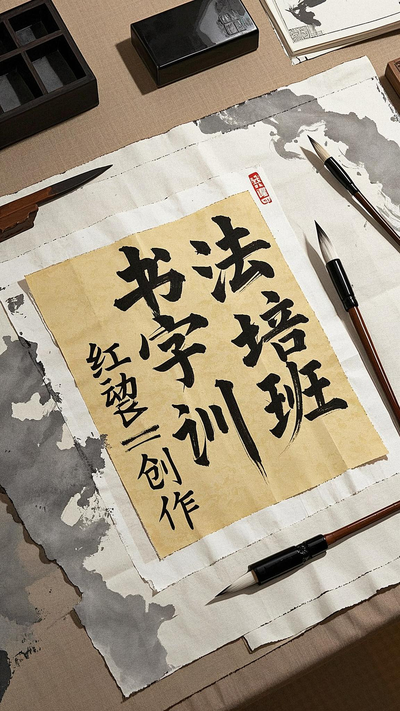 书法
字培
训班
红二创作